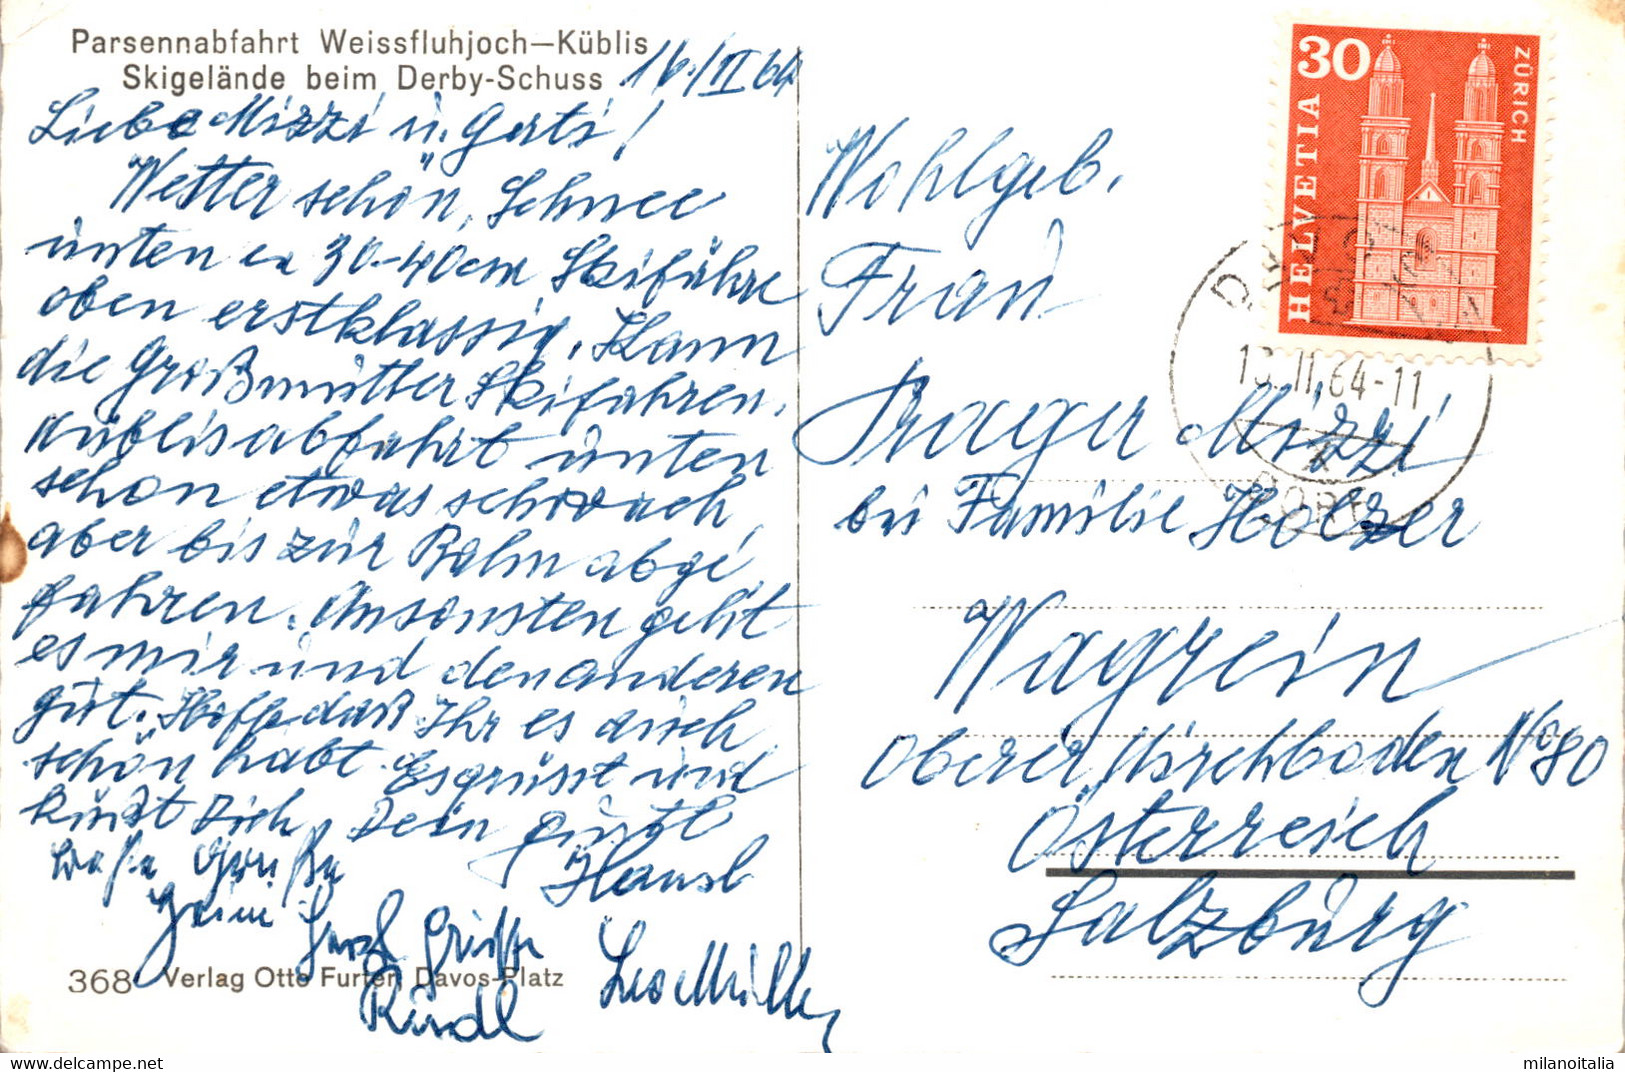 Parsennabfahrt Weissfluhjoch—Küblis
Skigelände beim Derby-Schuss
16./II 64
Liebe Mizzi u. Gerti!
Wetter schön, Schnee
unten ca 30-40cm Skiführe
oben erstklassig. Kann
die Großmutter Skifahren.
Küblisabfahrt unten
schon etwas schwach
aber bis zur Bahn abge
fahren. Ansonsten geht
es mir und den anderen
gut. Hoffe daß Ihr es auch
schön habt. Es grüsst und
küßt Dich, Dein
Hansl
Grüße
Grüße
Rudl
368 Verlag Otto Furter, Davos-Platz
HELVETIA
30
ZÜRICH
DAVOS
II.64-11
DORF
Wohlgeb.
Frau
Prager Mizzi
bei Familie Holzer
Wagrein
Oberer Kirchboden No 80
Österreich
Salzburg
milanoitalia